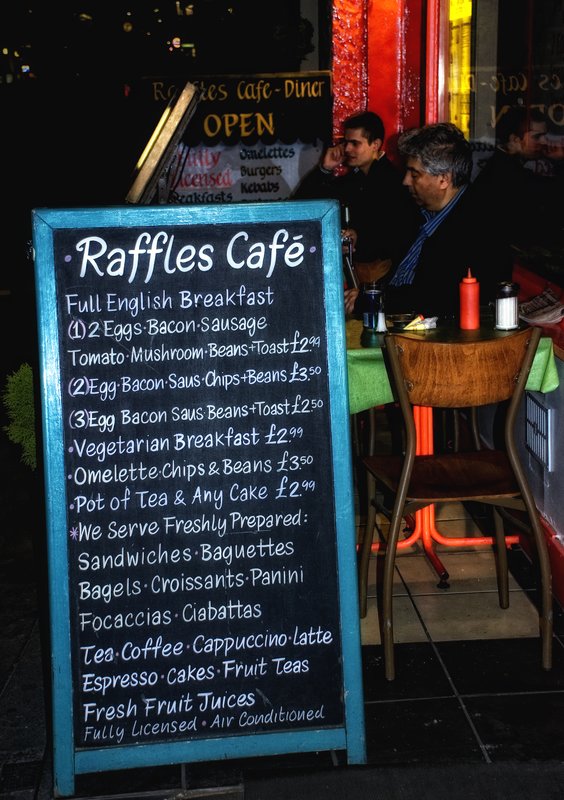 Raffles Cafe-Diner
OPEN
Fully
Licensed
Breakfasts
Omelettes
Burgers
Kebabs
·Raffles Café·
Full English Breakfast
(1) 2 Eggs·Bacon·Sausage
Tomato·Mushroom·Beans+Toast £2.99
(2) Egg·Bacon·Saus·Chips+Beans £3.50
(3) Egg Bacon Saus Beans+Toast £2.50
·Vegetarian Breakfast £2.99
·Omelette Chips & Beans £3.50
·Pot of Tea & Any Cake £2.99
*We Serve Freshly Prepared:
Sandwiches·Baguettes
Bagels·Croissants·Panini
Focaccias·Ciabattas
Tea·Coffee·Cappuccino·latte
Espresso·Cakes·Fruit Teas
Fresh Fruit Juices
Fully Licensed · Air Conditioned